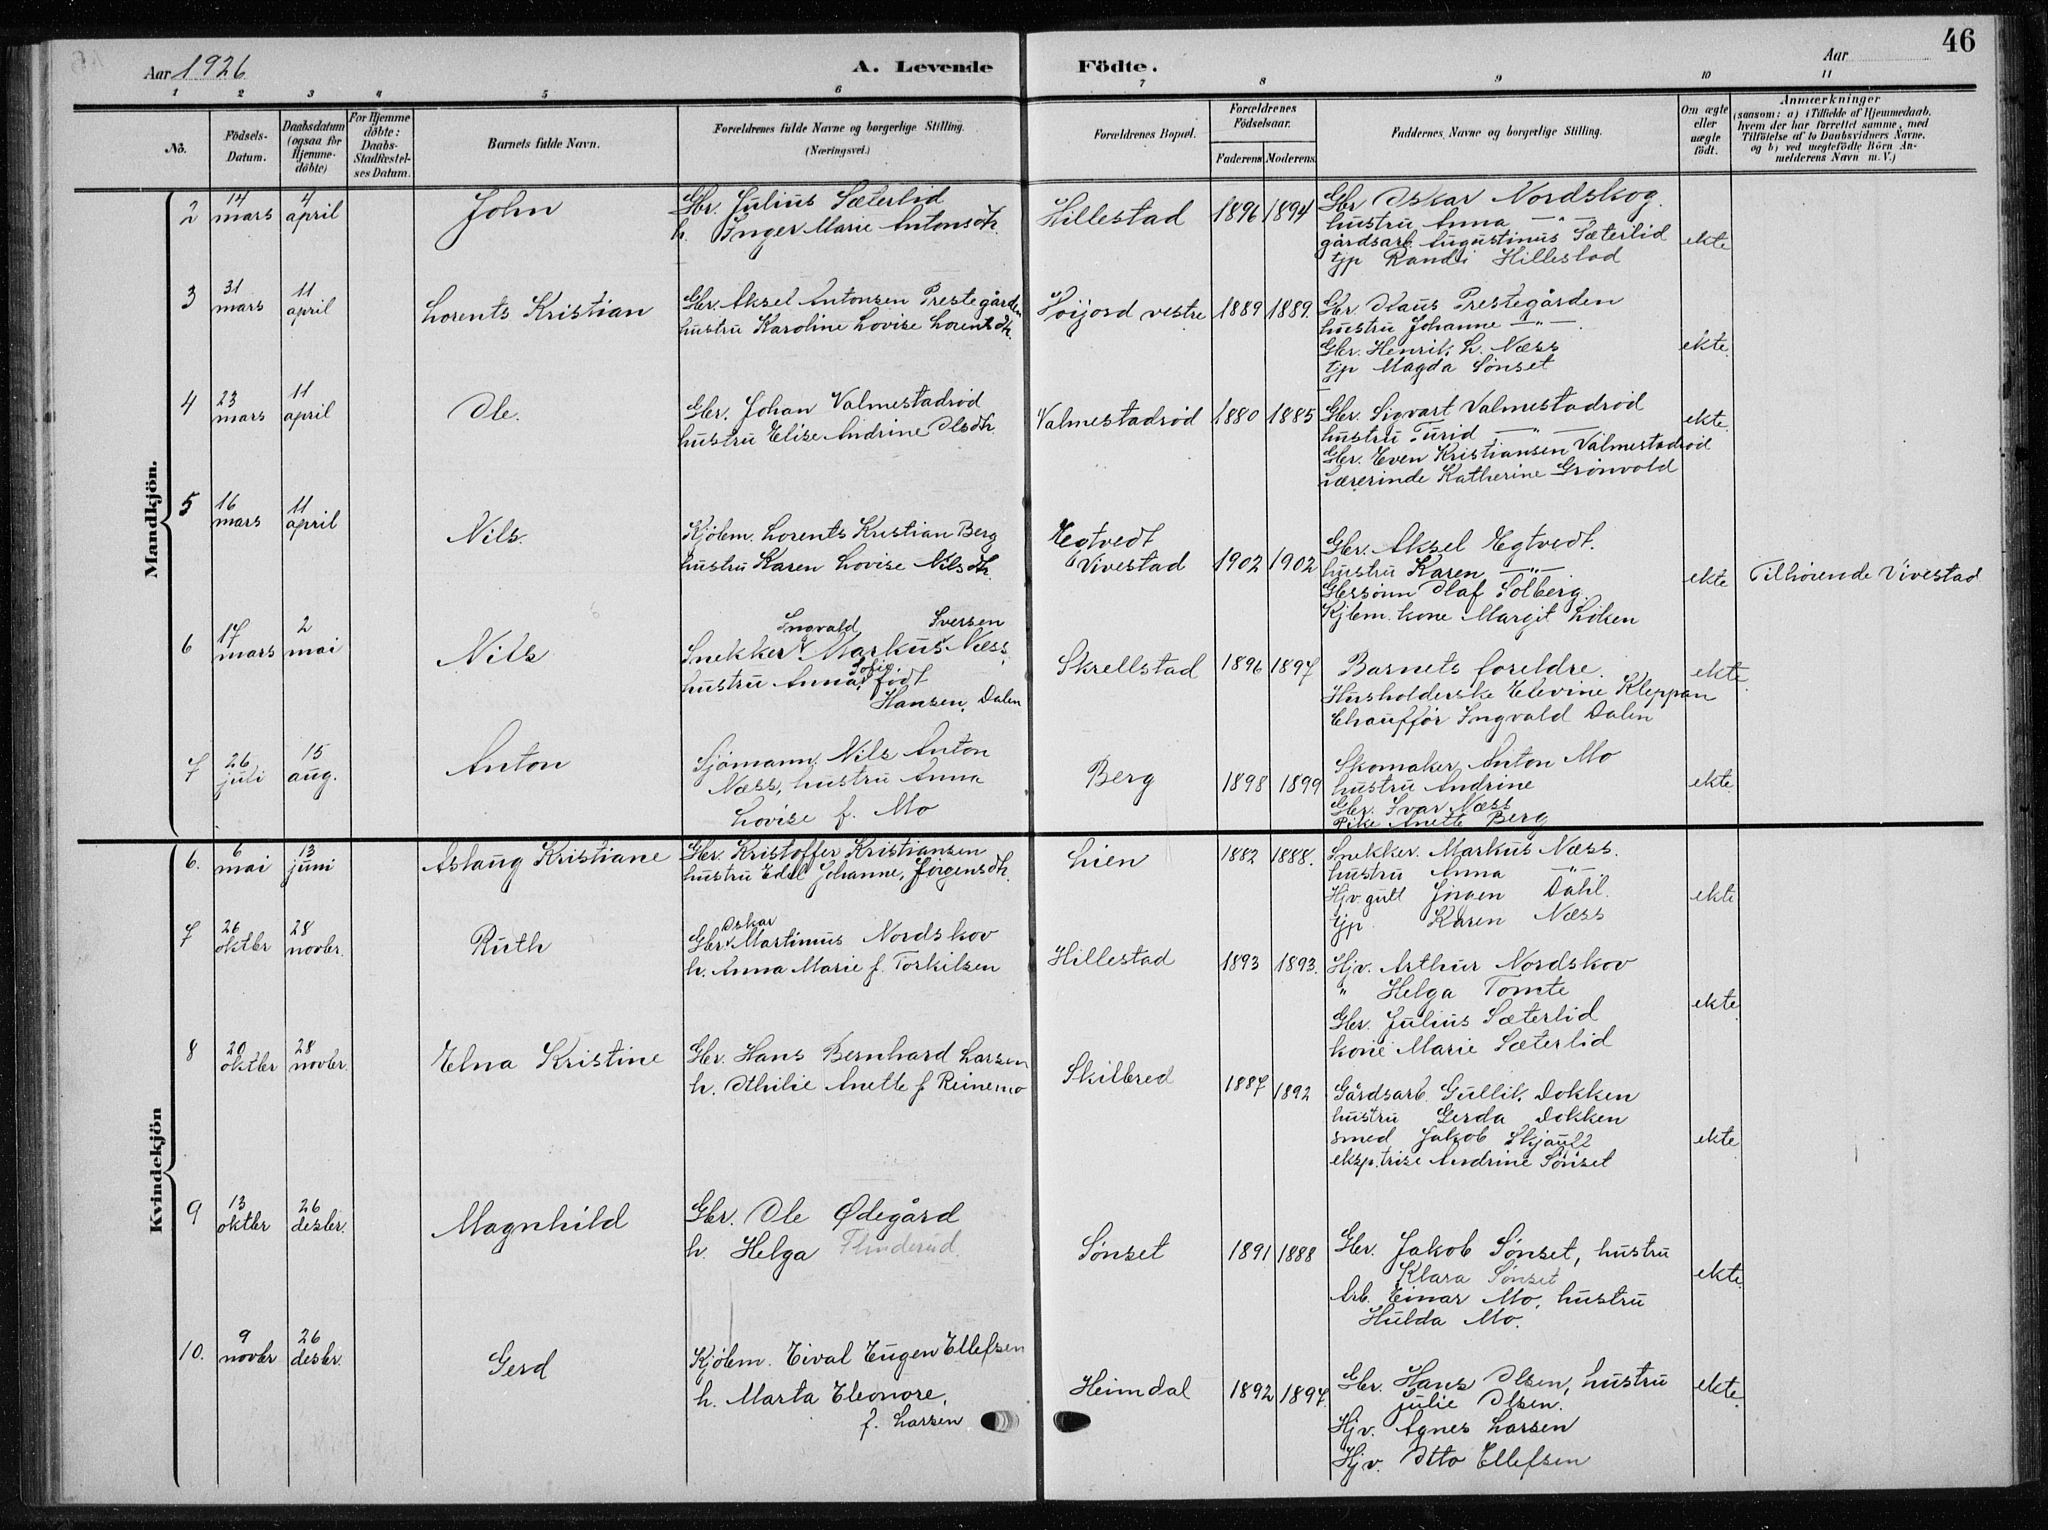 46
Aar 1926
A. Levende Födte.
Aar
1 2 3 4 5 6 7 8 9 10 11
No.
Födsels-Datum.
Daabsdatum (ogsaa for Hjemmedöbte)
For Hjemmedöbte: Daabs-Stadfæstelses Datum.
Barnets fulde Navn.
Forældrenes fulde Navne og borgerlige Stilling.
(Næringsvei.)
Forældrenes Bopæl.
Forældrenes Födselsaar.
Faderens Moderens
Faddernes Navne og borgerlige Stilling.
Om ægte eller uægte födt.
Anmærkninger
(saasom: a) i Tilfælde af Hjemmedaab, hvem der har forrettet samme, med Tilföielse af to Daabsvidners Navne, og b) ved uægtefödte Börn Anmelderens Navn m. V.)
Mandkjön.
2 14 mars 4 april John
Gbr. Julius Sæterlid
h. Inger Marie Antonsdtr.
Hillestad 1896 1894
Gbr Oskar Nordskog.
hustru Anna —"—
gårdsarb. Augustinus Sæterlid
tjp Randi Hillestad
ekte
3 31 mars 11 april Lorents Kristian
Gbr. Aksel Antonsen Prestegården
hustru Karoline Lovise Lorentsdtr.
Höijord vestre 1889 1889.
Gbr. Klaus Prestegården
hustru Johanne —"—
Gbr. Henrik L. Næss
tjp Magda Sønset
ekte.
4 23 mars 11 april Ole.
Gbr. Johan Valmestadrød
hustru Elise Andrine Olsdtr
Valmestadrød 1880 1885
Gbr. Sigvart Valmestadrød
hustru Turid —"—
Gbr. Even Kristiansen Valmestadrød
Lærerinde Katherine Grønvold
ekte.
5 16 mars 11 april Nils.
Kjøbm. Lorents Kristian Berg
hustru Karen Lovise Nilsdtr.
Egtvedt
Vivestad 1902 1902
Gbr. Aksel Egtvedt.
hustru Karen —"—
Gbrsønn Olaf Solberg.
Kjbm. kone Margit Løken
ekte Tilhørende Vivestad
6 17 mars 2 mai Nils
Ingvald Iversen
Snekker Markus Næss.
Sofie
hustru Anna født
Hansen, Dalen
Skrellstad 1896 1897
Barnets foreldre.
Husholderske Elevine Kleppan
Chauffør Ingvald Dalen
ekte.
7 26 juli 15 aug. Anton
Sjømann, Nils Anton
Næss, hustru Anna
Lovise f. Mo
Berg 1898 1899
Skomaker Anton Mo
hustru Andrine
Gbr. Ivar Næss
Pike Anette Berg
ekte
Kvindekjön
6. 6 mai 13 juni Aslaug Kristiane
Gbr. Kristoffer Kristiansen
hustru Edel Johanne, Jørgensdtr.
Lien 1882 1888.
Snekker. Markus Næss.
hustru Anna —"—
Hjv. gutt Jørgen Dahl.
tjp. Karen Næss
ekte
7 26 oktbr 28 novbr. Ruth
Oskar
Gbr. Martinus Nordskov
h. Anna Marie f. Torkilsen
Hillestad 1893 1893.
Hjv. Arthur Nordskov
" Helga Tomte
Gbr. Julius Sæterlid
kone Marie Sæterlid
ekte.
8 20 oktbr 28 novbr. Elna Kristine
Gbr. Hans Bernhard Larsen
h. Othilie Anette f Reinemo
Skilbred 1887 1892
Gårdsarb. Gullik Dokken
hustru Gerda Dokken
smed Jakob Skjaull
eksp.trise Andrine Sønset
ekte.
9 13 oktbr 26 desbr. Magnhild
Gbr. Ole Ødegård
h. Helga
Sønset 1891 1888
Gbr. Jakob Sønset, hustru
Klara Sønset
Arb. Einar Mo, hustru
Hulda Mo.
ekte.
10. 9 novbr 26 desbr. Gerd
Kjøbm. Eival Eugen Ellefsen
h. Marta Eleonore,
f. Larsen
Heimdal 1892 1897.
Gbr. Hans Olsen, hustru
Julie Olsen.
Hjv. Agnes Larsen
Hjv. Otto Ellefsen
ekte.